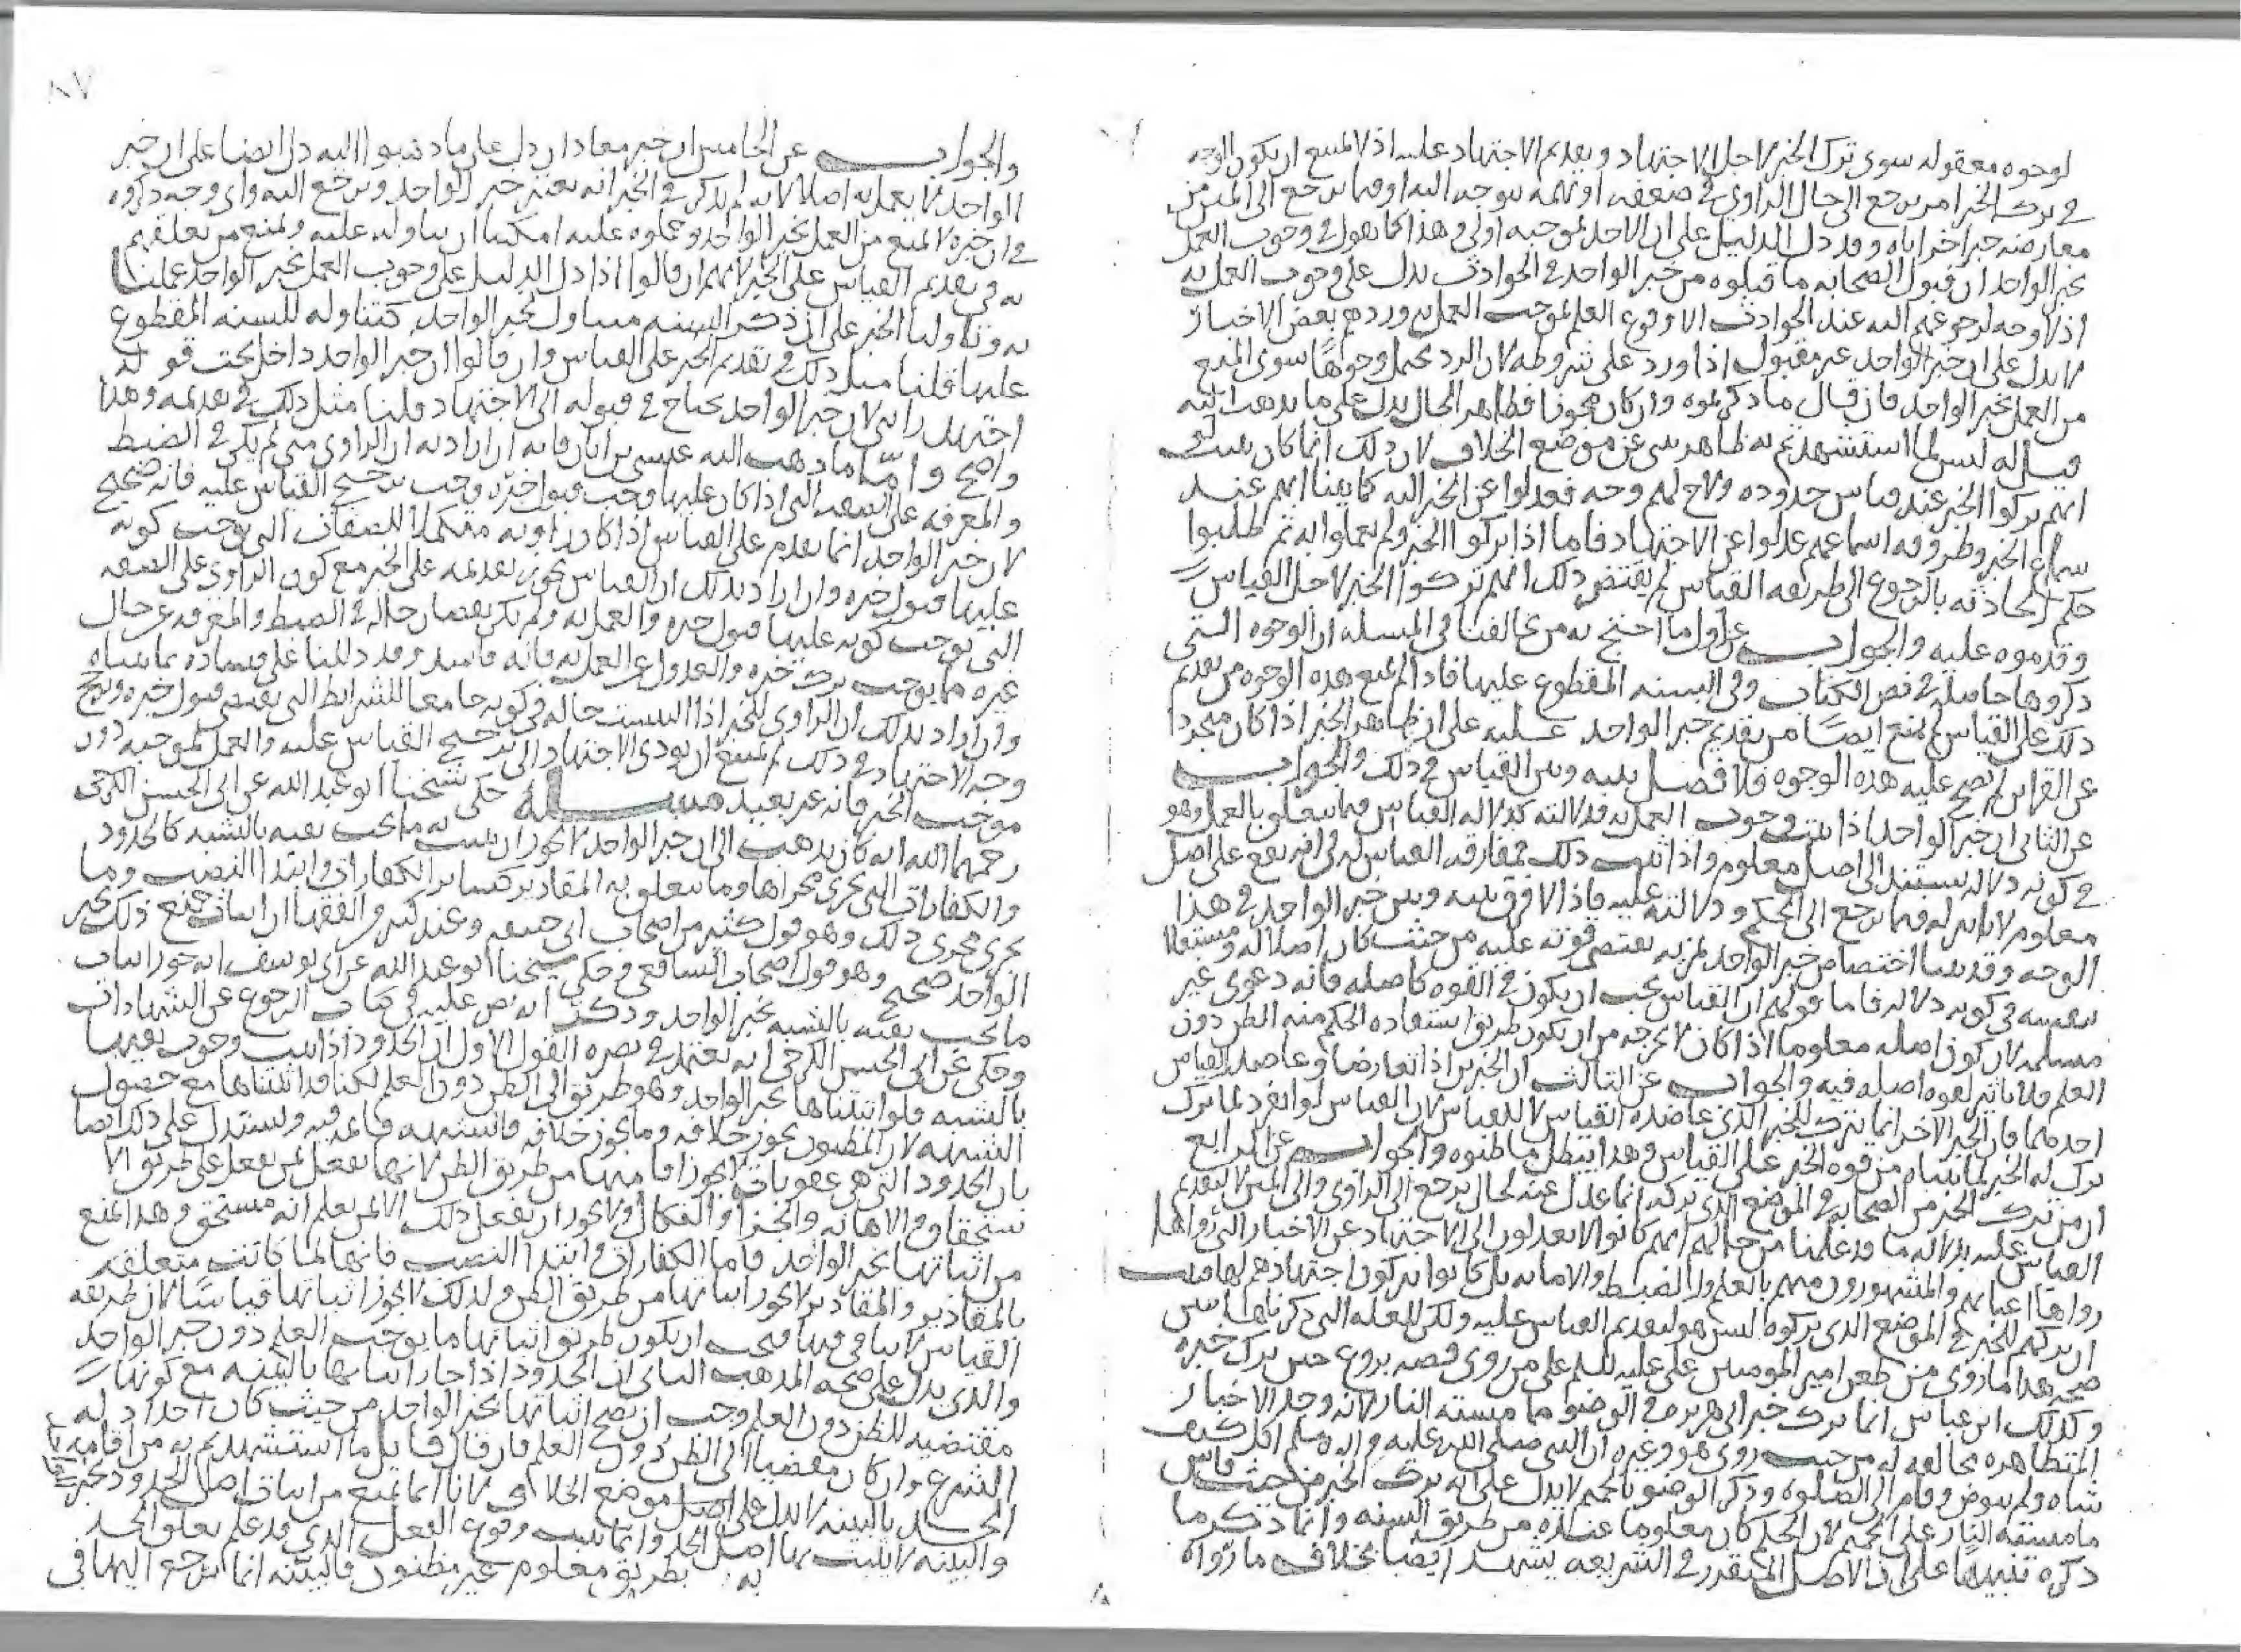 لوجوه معقوله سوى ترك الخبر لاجل الاجتهاد وتقديم الاجتهاد عليه اذ لا يمتنع ان يكون الوجه
في ترك الخبر امر يرجع الى حال الراوي في ضعفه او تهمه توجه اليه او فيما يرجع الى المتن من
معارضه خبر اخر اياه وقد دل الدليل على ان الاخذ بموجبه اولى وهذا كما نقول في وجوب العمل
بخبر الواحد ان قبول الصحابه ما قبلوه من خبر الواحد في الحوادث يدل على وجوب العمل به
اذ لا وجه لرجوعهم اليه عند الحوادث الا وقوع العلم بموجب العمل به وردهم بعض الاخبار
لا يدل على ان خبر الواحد غير مقبول اذا ورد على شروطه لان الرد يحتمل وجوها سوى المنع
من العمل بخبر الواحد فان قال ما ذكرتموه وان كان مجوزا فظاهر الحال يدل على ما نذهب اليه
قيل له ليس لما استشهدتم به ظاهر ينبى عن موضع الخلاف لان ذلك انما كان يثبت لو
انهم تركوا الخبر عند قياس حدوده ولاح لهم وجه فعدلوا عن الخبر اليه كما بينا انهم عند
سماع الخبر وطروقه اسماعهم عدلوا عن الاجتهاد فاما اذا تركوا الخبر ولم يعملوا به ثم طلبوا
حكم الحادثه بالرجوع الى طريقه القياس لم يقتض ذلك انهم تركوا الخبر لاجل القياس
وقدموه عليه والجواب عن اول ما احتج به من يخالفنا في المسله ان الوجوه التي
ذكروها حاصله في نص الكتاب وفي السنه المقطوع عليها فاذا لم تمنع هذه الوجوه من تقديم
ذلك على القياس لم تمنع ايضا من تقديم خبر الواحد عليه على ان ظاهر الخبر اذا كان مجردا
عن القراين لم تصح عليه هذه الوجوه فلا فصل بينه وبين القياس في ذلك والجواب
عن الثاني ان خبر الواحد اذا ثبت وجوب العمل به فدلالته كدلاله القياس فيما يتعلق بالعمل وهو
في كونه دلاله يستند الى اصل معلوم واذا ثبت ذلك فمفارقه القياس له في انه يقع على اصل
معلوم لا تاثير له فيما يرجع الى الحكم ودلالته عليه فاذا لا فرق بينه وبين خبر الواحد في هذا
الوجه وقد بينا اختصاص خبر الواحد بمزيه تقتضي قوته عليه من حيث كان اصلا له ومستقلا
بنفسه في كونه دلاله فاما قولهم ان القياس يجب ان يكون في القوه كاصله فانه دعوى غير
مسلمه لان كون اصله معلوما اذا كان لا يخرجه من ان يكون طريق استفاده الحكم منه الظن دون
العلم فلا تاثير لقوه اصله فيه والجواب عن الثالث ان الخبرين اذا تعارضا وعاضد القياس
احدهما فان الخبر الاخر انما يترك للخبر الذي عاضده القياس لا للقياس لان القياس لو انفرد لما ترك
ترك له الخبر لما بيناه من قوه الخبر على القياس وهذا يبطل ما ظنوه والجواب عن الرابع
ان من ترك الخبر من الصحابه في الموضع الذي تركه انما عدل عنه لحال يرجع الى الراوي والى المتن لا لتقديم
القياس عليه بدلاله ما قد علمنا من حالهم انهم كانوا لا يعدلون الى الاجتهاد عن الاخبار التي رواها
رواها اعيانهم والمشهورون منهم بالعلم والضبط والامانه بل كانوا يتركون اجتهادهم لها فثبت
ان تركهم للخبر في الموضع الذي تركوه ليس هو لتقديم القياس عليه ولكن للعله التي ذكرناها يبين
صحه هذا ما روى من طعن امير المومنين علي عليه السلم على من روى قصه بروع حين ترك خبره
وكذلك ابن عباس انما ترك خبر ابي هريره في الوضو مما مسته النار لانه وجد الاخبار
المتظاهره مخالفه له من حيث روى هو وغيره ان النبي صلى الله عليه واله وسلم اكل كتف
شاه ولم يتوض وقام الى الصلوه وذكر الوضو بالحميم لا يدل على انه ترك الخبر من حيث قاس
ما مسته النار على الحميم لان الحكم كان معلوما عنده من طريق السنه وانما ذكر ما
ذكره تنبيها على ان الاصل المتقرر في الشريعه يشهد ايضا بخلاف ما رواه
٨٧
والجواب عن الخامس ان خبر معاذ ان دل على ما ذهبوا اليه دل ايضا على ان خبر
الواحد لا يعمل به اصلا لانه لم يذكر في الخبر انه يعتبر خبر الواحد ويرجع اليه واي وجه ذكروه
في ان خبره لا يمنع من العمل بخبر الواحد وحملوه عليه امكننا ان نتاوله عليه ونمنع من تعلقهم
به في تقديم القياس على الخبر لانهم ان قالوا اذا دل الدليل على وجوب العمل بخبر الواحد عملنا
به وتاولنا الخبر على ان ذكر السنه متناول لخبر الواحد كتناوله للسنه المقطوع
عليها قلنا مثل ذلك في تقديم الخبر على القياس وان قالوا ان خبر الواحد داخل تحت قوله
اجتهد رايي لان خبر الواحد يحتاج في قبوله الى الاجتهاد قلنا مثل ذلك في تقديمه وهذا
واضح واما ما ذهب اليه عيسى بن ابان فانه ان اراد به ان الراوي متى لم يكن في الضبط
والمعرفه على الصفه التي اذا كان عليها وجب قبول خبره وجب ترجيح القياس عليه فانه صحيح
لان خبر الواحد انما يقدم على القياس اذا كان راويه متكملا للصفات التي توجب كونه
عليها قبول خبره وان اراد بذلك ان القياس يجوز تقديمه على الخبر مع كون الراوي على الصفه
التي توجب كونه عليها قبول خبره والعمل به ولم يكن نقصان حاله في الضبط والمعرفه عن حال
غيره مما يوجب ترك خبره والعدول عن العمل به فانه فاسد وقد دللنا على فساده بما بيناه
وان اراد بذلك ان الراوي للخبر اذا التبست حاله في كونه جامعا للشرايط التي تقتضي قبول خبره
وجه الاجتهاد في ذلك لم يمتنع ان يودي الاجتهاد الى ترجيح القياس عليه والعمل بموجبه دون
موجب الخبر فانه غير بعيد مسـله حكى شيخنا ابو عبد الله عن ابي الحسن الكرخي
رحمهما الله انه كان يذهب الى ان خبر الواحد لا يجوز ان يثبت به ما يجب نفيه بالشبه كالحدود
والكفارات التي تجري مجراها وما يتعلق به المقادير كساير الكفارات وابتدا النصب وما
يجري مجرى ذلك وهو قول كثير من اصحاب ابي حنيفه وعند كثير من الفقها ان اثبات جميع ذلك بخبر
الواحد صحيح وهو قول اصحاب الشافعي وحكى شيخنا ابو عبد الله عن ابي يوسف انه جوز اثبات
ما يجب نفيه بالشبه بخبر الواحد وذكر انه نص عليه في كتاب الرجوع عن الشهادات
وحكى عن ابي الحسن الكرخي انه يعتمد في نصره القول الاول ان الحدود اذا ثبت وجوب نفيها
بالشبه فلو اثبتناها بخبر الواحد وهو طريق الى الظن دون العلم لكنا قد اثبتناها مع حصول
الشبهه لان المظنون يجوز خلافه وما يجوز خلافه فالشبهه قايمه فيه ويستدل على ذلك ايضا
بان الحدود التي هي عقوبات لا يجوز اقامتها من طريق الظن لانها تفعل بمن يفعل على طريق الا
ستحقاق والاهانه والجزا والنكال ولا يجوز ان يفعل ذلك الا بمن يعلم انه مستحق وهذا يمنع
من اثباتها بخبر الواحد فاما الكفارات وابتدا النصب فانها لما كانت متعلقه
بالمقادير والمقادير لا يجوز اثباتها من طريق الظن ولذلك لا يجوز اثباتها قياسا لان طريقه
القياس لا تتاتى فيها فيجب ان يكون طريق اثباتها ما يوجب العلم دون خبر الواحد
والذي يدل على صحه المذهب الثاني ان الحدود اذا جاز اثباتها بالبينه مع كونها
مقتضيه للظن دون العلم وجب ان يصح اثباتها بخبر الواحد من حيث كان احد ادله
الشرع وان كان مفضيا الى الظن دون العلم فان قال قايل ما استشهدتم به من اقامه
الحد بالبينه لا يدل على موضع الخلاف لانا انما نمنع من اثبات اصل الحدود بخبر
والبينه لا يثبت بها اصل الحد وانما يثبت وقوع الفعل الذي قد علم تعلق الحد
به بطريق معلوم غير مظنون فالبينه انما يرجع اليها في